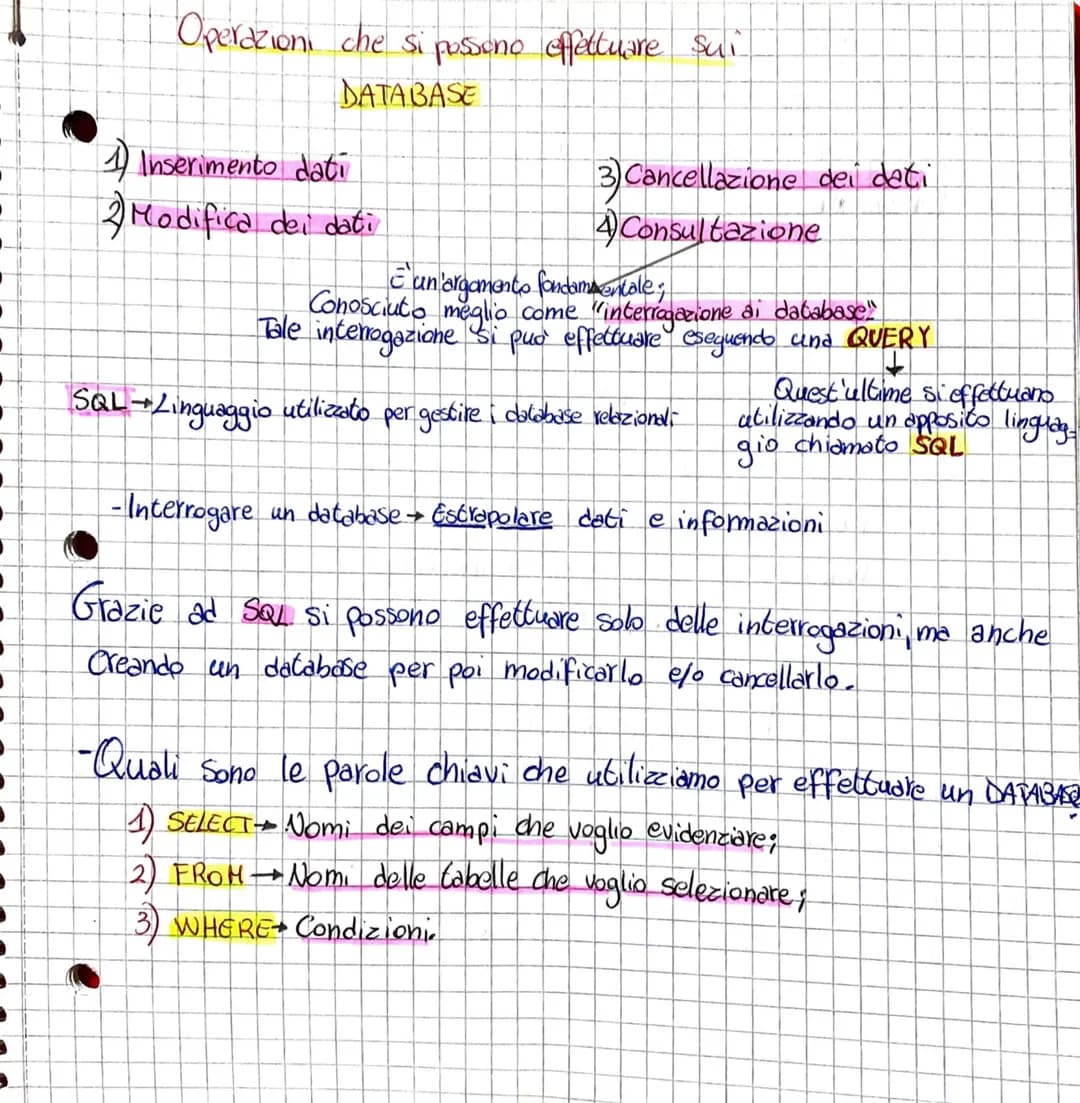 Operazioni che si possono effettuare sui
DATABASE
1) Inserimento dati
2) Modifica dei dati
3) Cancellazione dei dati
4) Consultazione
È un'argomento fondamentale;
Conosciuto meglio come "interrogazione ai database".
Tale interrogazione si può effettuare eseguendo una QUERY
↓
Quest'ultime si effettuano
utilizzando un apposito linguag-
gio chiamato SQL
SQL→Linguaggio utilizzato per gestire i database relazionali
-Interrogare un database→ Estrapolare dati e informazioni
Grazie ad SQL si possono effettuare solo delle interrogazioni, ma anche
Creando un database per poi modificarlo e/o cancellarlo.
-Quali sono le parole chiavi che utilizziamo per effettuare un DATABASE?
1) SELECT→ Nomi dei campi che voglio evidenziare;
2) FROM→ Nomi delle tabelle che voglio selezionare;
3) WHERE→ Condizioni.